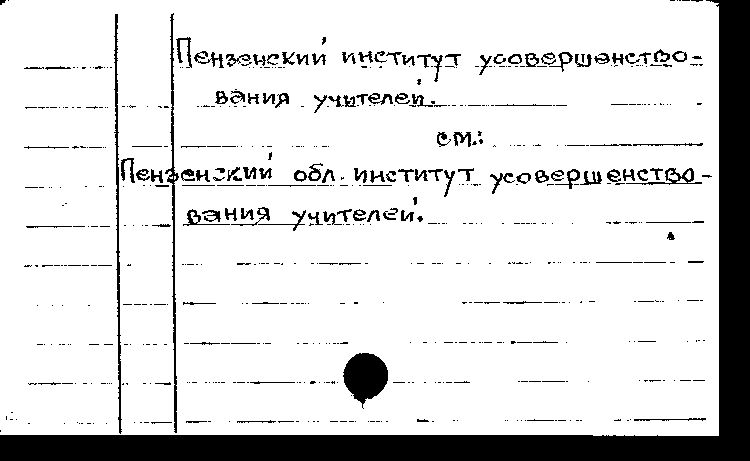 Пензенский институт усовершенство-
вания учителей.
см.:
Пензенский обл. институт усовершенство-
вания учителей.